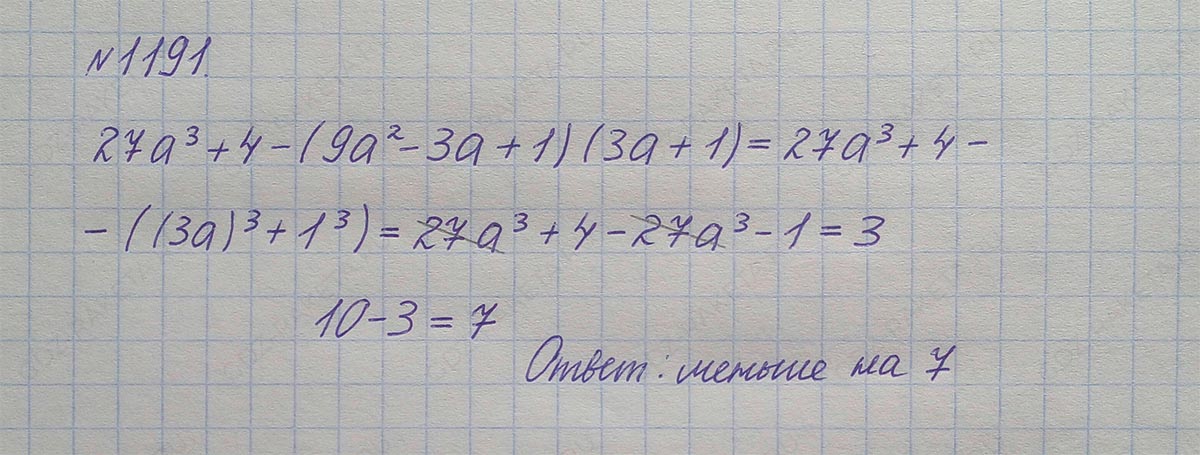 №1191.
27a³ + 4 - (9a² - 3a + 1)(3a + 1) = 27a³ + 4 -
- ((3a)³ + 1³) = 27a³ + 4 - 27a³ - 1 = 3
10 - 3 = 7
Ответ: меньше на 7